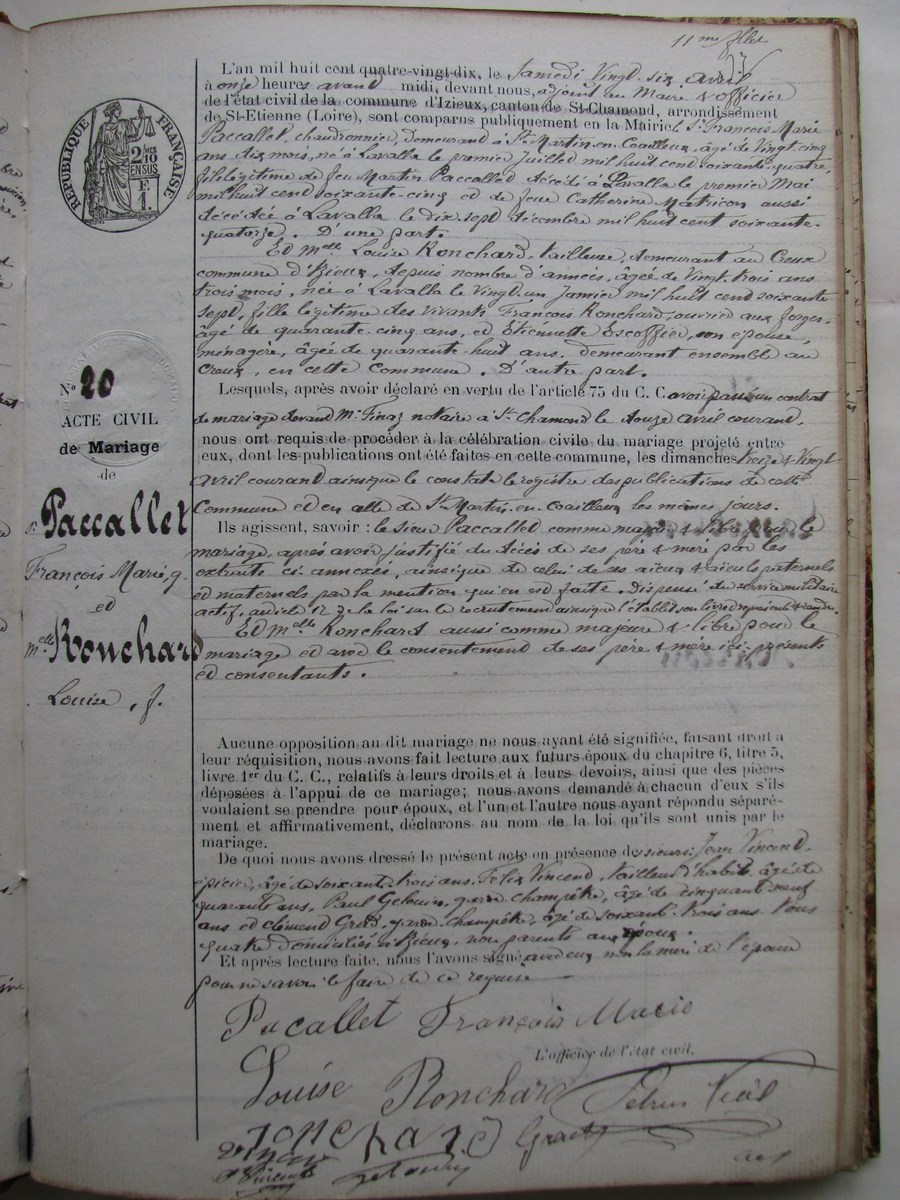 11me fllet
L'an mil huit cent quatre-vingt-dix, le Samedi Vingt six avril
à onze heures avant midi, devant nous, adjoint au Maire & officier
de l'état civil de la commune d'Izieux, canton de St-Chamond, arrondissement
de St-Etienne (Loire), sont comparus publiquement en la Mairie: Sr François Marie
Paccallet, chaudronnier, demeurant à St Martin-en-Coailleux, âgé de Vingt cinq
ans dix mois, né à Lavalla le premier Juillet mil huit cent soixante-quatre,
fils légitime de feu Martin Paccallet décédé à Lavalla le premier Mai
mil huit cent soixante-cinq et de feue Catherine Matricon aussi
décédée à Lavalla le dix sept décembre mil huit cent soixante-
quatorze. D'une part.
Et Melle Louise Ronchard, tailleuse, demeurant au Creux
commune d'Izieux, depuis nombre d'années, âgée de Vingt trois ans
trois mois, née à Lavalla le Vingt-un Janvier mil huit cent soixante
sept, fille légitime des vivants François Ronchard, ouvrier aux forges,
âgé de quarante-cinq ans, et Etiennette Escoffier, son épouse,
ménagère, âgée de quarante-huit ans, demeurant ensemble au
Creux, en cette Commune. D'autre part.
Lesquels, après avoir déclaré en vertu de l'article 75 du C. C. avoir passé un contrat
de mariage devant Me Finaz notaire à St Chamond le douze avril courant,
nous ont requis de procéder à la célébration civile du mariage projeté entre
eux, dont les publications ont été faites en cette commune, les dimanches treize & Vingt
avril courant ainsi que le constate le registre des publications de cette
Commune et en celle de St Martin-en-Coailleux les mêmes jours.
Ils agissent, savoir : le sieur Paccallet comme majeur & libre pour le
mariage, après avoir justifié du décès de ses père & mère par les
extraits ci-annexés, ainsi que de celui de ses aïeux & aïeules paternels
et maternels par la mention qui en est faite. Dispensé du service militaire
actif, article 17 de la loi sur le recrutement ainsi que l'établit son livret
Et Melle Ronchard aussi comme majeure & libre pour le
mariage et avec le consentement de ses père & mère ici présents
et consentants.
Aucune opposition au dit mariage ne nous ayant été signifiée, faisant droit à
leur réquisition, nous avons fait lecture aux futurs époux du chapitre 6, titre 5,
livre 1er du C. C., relatifs à leurs droits et à leurs devoirs, ainsi que des pièces
déposées à l'appui de ce mariage; nous avons demandé à chacun d'eux s'ils
voulaient se prendre pour époux, et l'un et l'autre nous ayant répondu séparé-
ment et affirmativement, déclarons au nom de la loi qu'ils sont unis par le
mariage.
De quoi nous avons dressé le présent acte en présence des sieurs: Jean Vincent,
épicier, âgé de soixante-trois ans, Félix Vincent, tailleur d'habits, âgé de
quarante ans, Paul Gelouin, garde champêtre, âgé de cinquante neuf
ans et Clément Grat, garde-champêtre, âgé de soixante-trois ans. Tous
quatre domiciliés à Izieux, non parents aux époux.
Et après lecture faite, nous l'avons signé avec eux non la mère de l'épouse
pour ne savoir le faire de ce requise
Pacallet François Marie
L'officier de l'état civil,
Louise Ronchard
Petrus Vial
ronchard
REPUBLIQUE FRANÇAISE
F.
1.
No 20
ACTE CIVIL
de Mariage
de
Sr Paccallet
François Marie, g.
et
Melle Ronchard
Louise, f.